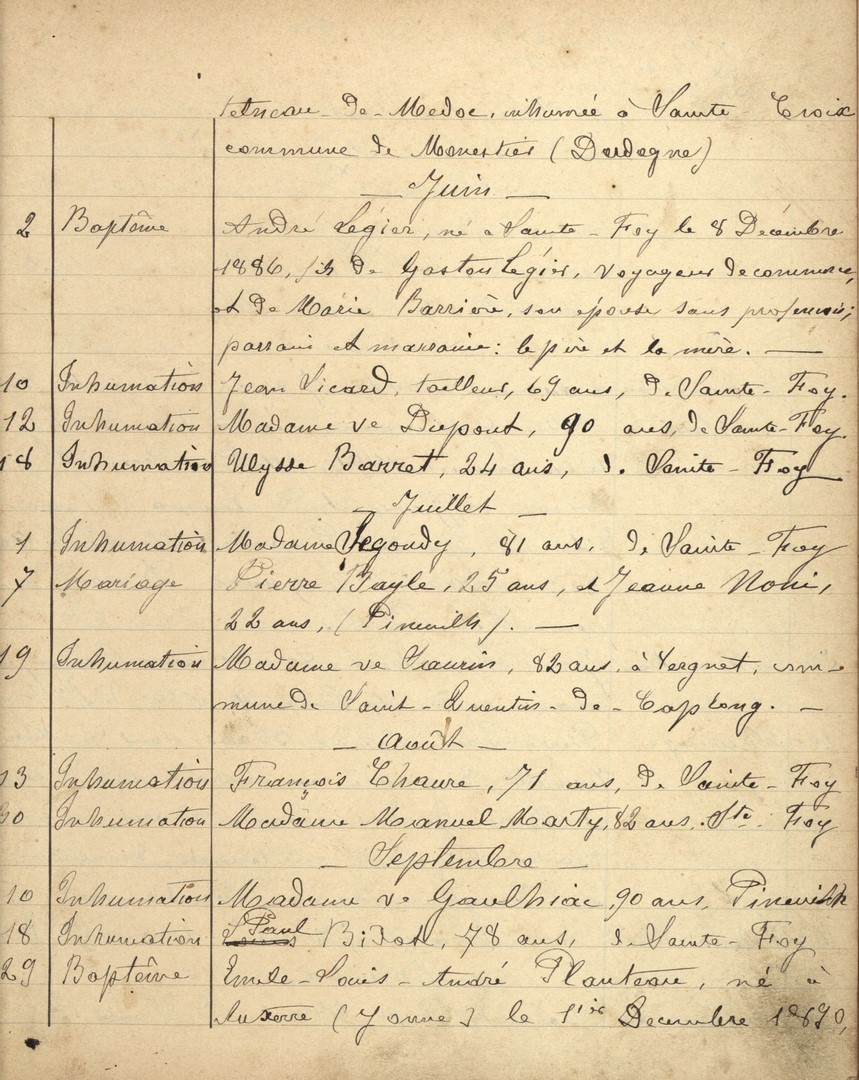 de-Medoc, inhumée à Sainte-Croix
commune de Monestier (Dordogne)
— Juin —
2 Baptême André Légier, né à Sainte-Foy le 8 Décembre
1886, fils de Gaston Légier, voyageur de commerce,
et de Marie Barrière, son épouse sans profession;
parrain et marraine: le père et la mère. —
10 Inhumation Jean Sicard, tailleur, 69 ans, de Sainte-Foy.
12 Inhumation Madame ve Dupont, 90 ans, de Sainte-Foy.
18 Inhumation Ulysse Barret, 24 ans, d. Sainte-Foy
— Juillet —
1 Inhumation Madame Segoudy, 81 ans, de Sainte-Foy
7 Mariage Pierre Bayle, 25 ans, et Jeanne
22 ans, (Pineuilh). —
19 Inhumation Madame ve Saurin, 82 ans, à Vergnet, com-
mune de Saint-Quentin-de-Caplong. —
— Août —
13 Inhumation François Chaure, 71 ans, de Sainte-Foy
30 Inhumation Madame Manuel Marty, 82 ans. Ste-Foy
— Septembre —
10 Inhumation Madame ve Gaulhiac, 90 ans, Pineuilh
18 Inhumation Paul Bidot, 78 ans, de Sainte-Foy
29 Baptême Emile-Louis-André Planteau, né à
Auxerre (Yonne) le 1ier Decembre 1890,